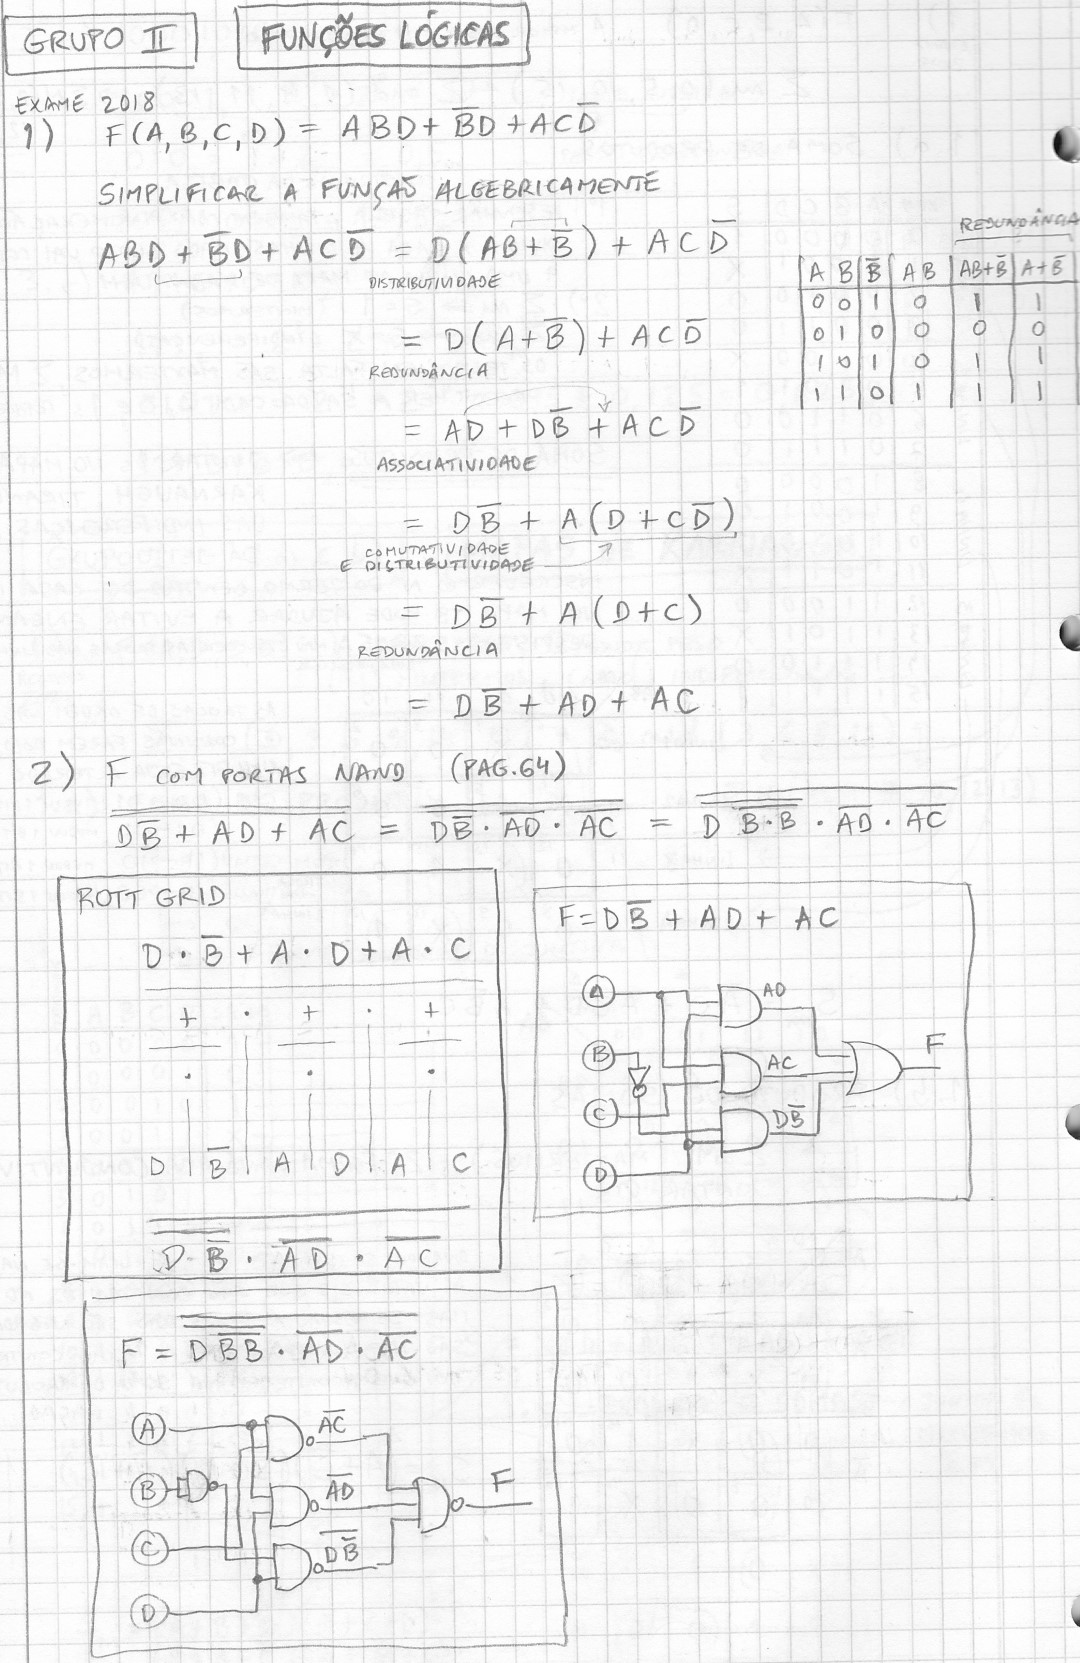 GRUPO II
FUNÇÕES LÓGICAS
EXAME 2018
1) F(A,B,C,D) = ABD + B̅D + ACD̅
SIMPLIFICAR A FUNÇAÕ ALGEBRICAMENTE
ABD + B̅D + ACD̅ = D(AB + B̅) + ACD̅
DISTRIBUTIVIDADE
= D(A + B̅) + ACD̅
REDUNDÂNCIA
= AD + DB̅ + ACD̅
ASSOCIATIVIDADE
= DB̅ + A(D + CD̅)
COMUTATIVIDADE
E DISTRIBUTIVIDADE
= DB̅ + A(D+C)
REDUNDÂNCIA
= DB̅ + AD + AC
REDUNDÂNCIA
A B B̅ AB AB+B̅ A+B̅
0 0 1 0 1 1
0 1 0 0 0 0
1 0 1 0 1 1
1 1 0 1 1 1
2) F COM PORTAS NAND (PAG.64)
D̿B̿̅ ̿+̿ ̿A̿D̿ ̿+̿ ̿A̿C̿ = D̅B̅·A̅D̅·A̅C̅ = D B̅·̅B̅ · A̅D̅ · A̅C̅
ROTT GRID
D · B̅ + A · D + A · C
+ · + · +
· · ·
D B̅ A D A C
D̅·B̅ · A̅D̅ · A̅C̅
F = DB̅ + AD + AC
A
AD
B
AC
F
C
DB̅
D
F = D B̅B̅ · A̅D̅ · A̅C̅
A
A̅C̅
B
A̅D̅
F
C
D̅B̿
D